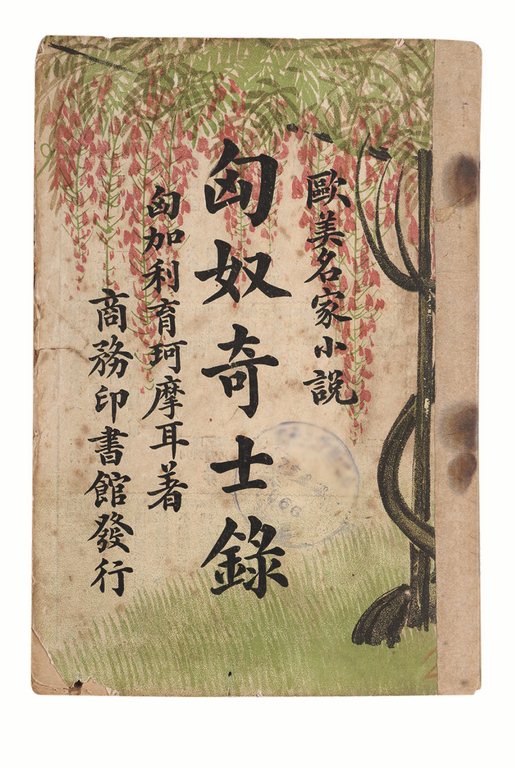 歐美名家小説
匈奴奇士錄
匈加利育珂摩耳著
商務印書館發行